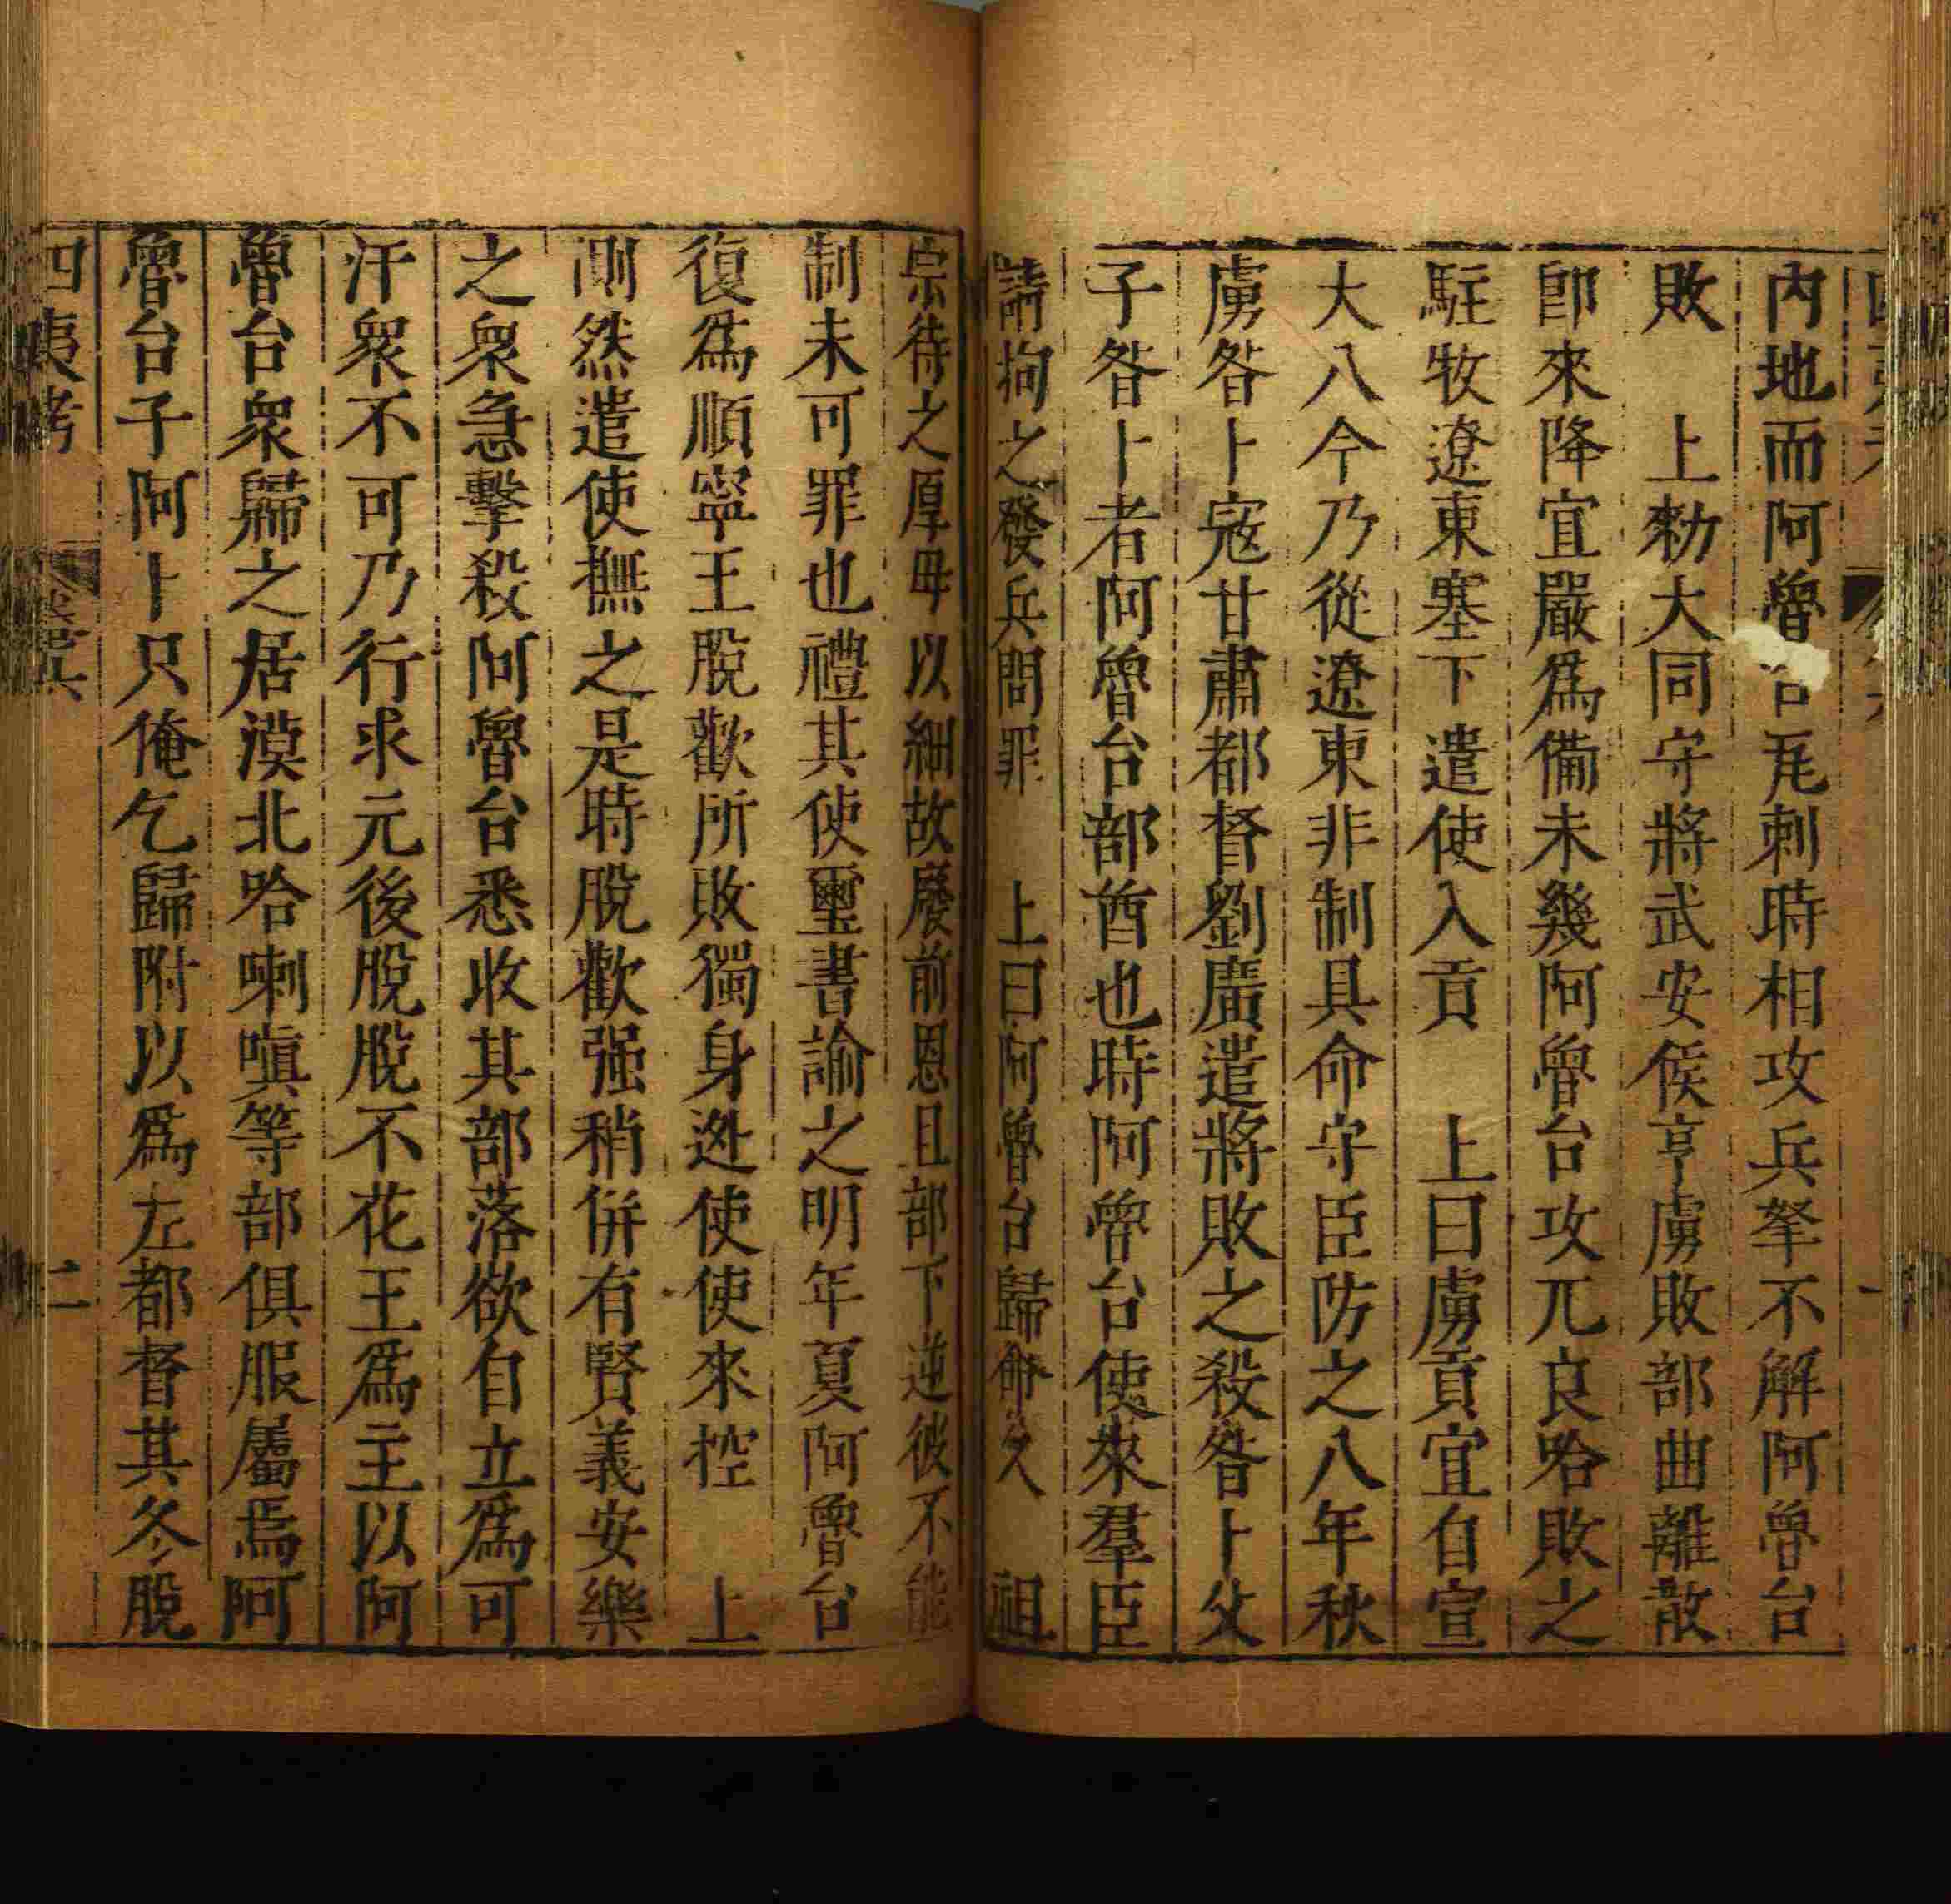 內地而阿魯台瓦剌時相攻兵拏不解阿魯台
敗　上勑大同守將武安侯亨虜敗部曲離散
卽來降宜嚴爲備未幾阿魯台攻兀良哈敗之
駐牧遼東塞下遣使入貢　上曰虜貢宜自宣
大八今乃從遼東非制具命守臣防之八年秋
虜昝卜寇甘肅都督劉廣遣將敗之殺昝卜父
子昝卜者阿魯台部酋也時阿魯台使來羣臣
請拘之發兵問罪　上曰阿魯台歸命久　祖
宗待之厚毋以細故廢前恩且部下逆彼不能
制未可罪也禮其使璽書諭之明年夏阿魯台
復爲順寧王脫歡所敗獨身迯使使來控　上
惻然遣使撫之是時脫歡强稍併有賢義安樂
之衆急擊殺阿魯台悉收其部落欲自立爲可
汗衆不可乃行求元後脫脫不花王爲主以阿
魯台衆歸之居漠北哈喇嗔等部俱服屬焉阿
魯台子阿卜只俺乞歸附以爲左都督其冬脫
四夷考　卷之六　二